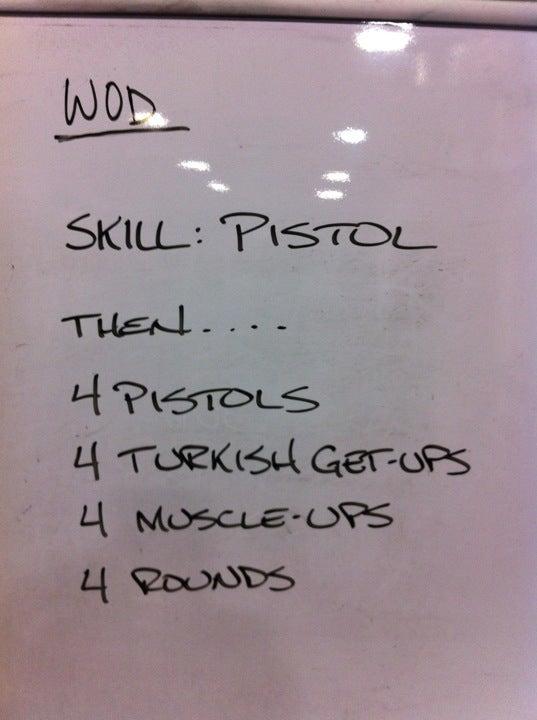 WOD
SKILL: PISTOL
THEN....
4 PISTOLS
4 TURKISH GET-UPS
4 MUSCLE-UPS
4 ROUNDS